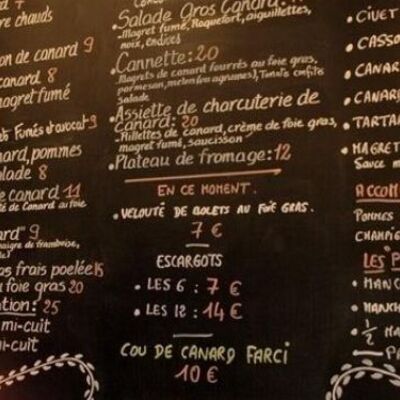 re chauds
on de canard 9
canard 8
magret fumé
Fumés et avocat 9
nard, pommes
salade 8
e canard 11
té de Canard au foie
ard" 9
naigre de framboise,
as frais poelée 15
foie gras 20
tion: 25
mi-cuit
mi-cuit
Salade Gros Canard
Magret fumé, Roquefort, aiguillettes,
noix, endives
• Cannette: 20
Magrets de canard fourrés au foie gras,
parmesan, melon (ou agrumes), Tomate confites
salade
• Assiette de charcuterie de
Canard: 20
Rillettes de canard, crème de foie gras,
magret fumé, saucisson
• Plateau de fromage: 12
EN CE MOMENT.
• VELOUTÉ DE BOLETS AU FOIE GRAS.
7 €
ESCARGOTS
• LES 6 : 7 €
• LES 12 : 14 €
COU DE CANARD FARCI
10 €
• CIVET
• CASSO
• CANAR
• CANAR
• TARTA
• MAGRET
Sauce m
ACCOM
POMMES
CHAMPIG
LES P
• MANC
• MANCH
• ½ MA